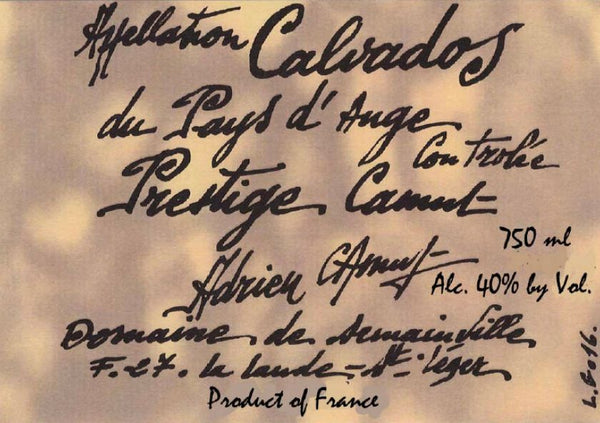 Appellation Calvados
du Pays d'Auge
Controlée
Prestige Camut
750 ml
Adrien CAmut
Alc. 40% by Vol.
Domaine de Semainville
F. 27. la lande - St. Léger
Product of France